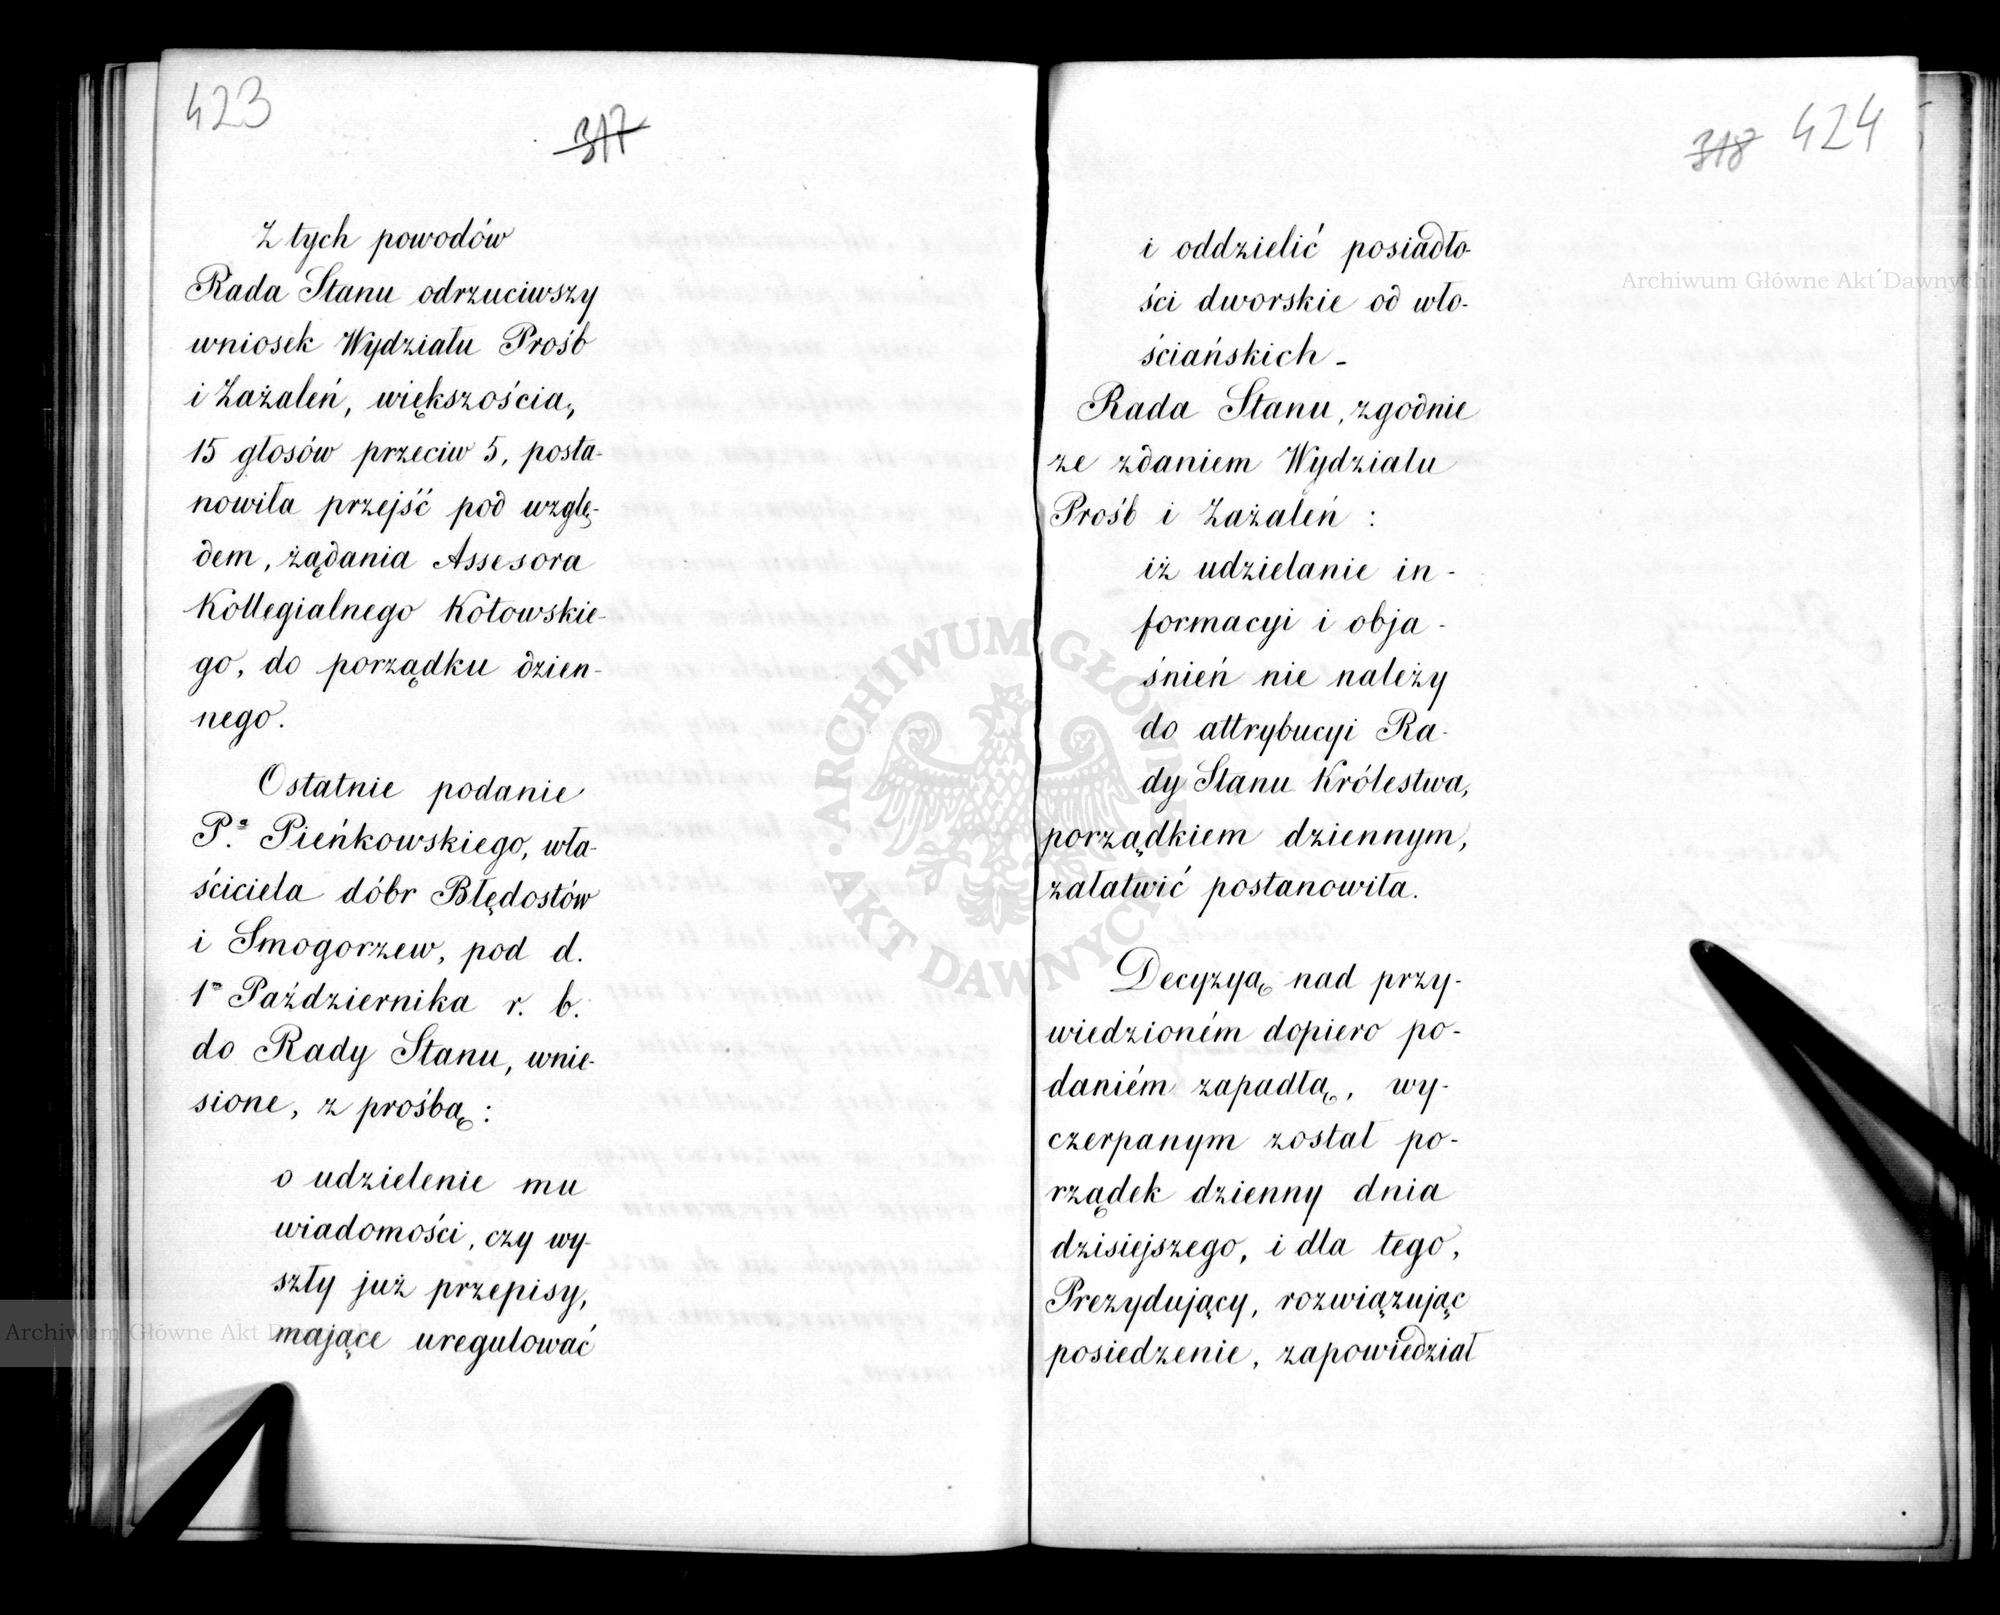 423
317
Z tych powodów
Rada Stanu odrzuciwszy
wniosek Wydziału Próśb
i Zażaleń, większością,
15 głosów przeciw 5, posta-
nowiła przejść pod wzglę-
dem, żądania Assesora
Kollegialnego Kotowskie-
go, do porządku dzien-
nego.
Ostatnie podanie
P.ª Pieńkowskiego, wła-
ściciela dóbr Błędostów
i Smogorzew, pod d.
1º Października r. b.
do Rady Stanu, wnie-
sione, z prośbą:
o udzielenie mu
wiadomości, czy wy-
szły już przepisy,
mające uregulować
318 424
i oddzielić posiadło-
ści dworskie od wło-
ściańskich -
Rada Stanu, zgodnie
ze zdaniem Wydziału
Próśb i Zażaleń:
iż udzielanie in-
formacyi i obja-
śnień nie należy
do attrybucyi Ra-
dy Stanu Królestwa,
porządkiem dziennym,
załatwić postanowiła.
Decyzyą nad przy-
wiedzioném dopiero po-
daniém zapadłą, wy-
czerpanym został po-
rządek dzienny dnia
dzisiejszego, i dla tego,
Prezydujący, rozwiązując
posiedzenie, zapowiedział
Archiwum Główne Akt Dawnych
Archiwum Główne Akt Dawnych
ARCHIWUM GŁÓWNE
AKT DAWNYCH